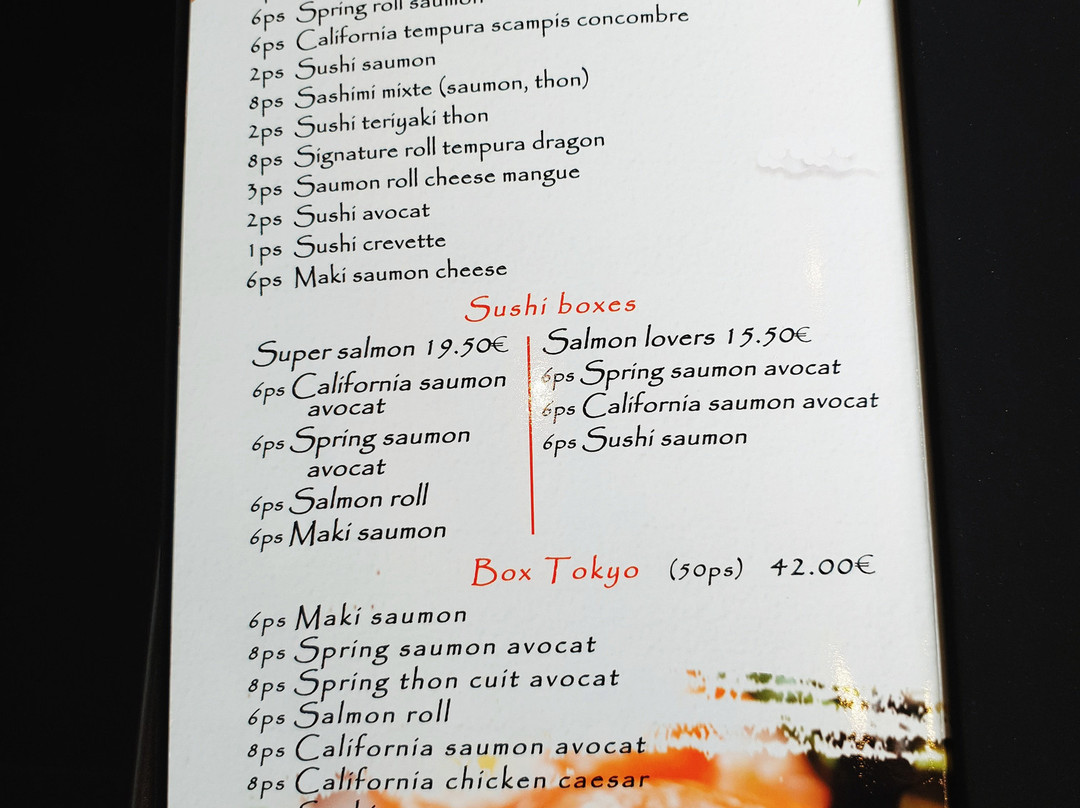 6ps Spring roll saumon
6ps California tempura scampis concombre
2ps Sushi saumon
8ps Sashimi mixte (saumon, thon)
2ps Sushi teriyaki thon
8ps Signature roll tempura dragon
3ps Saumon roll cheese mangue
2ps Sushi avocat
1ps Sushi crevette
6ps Maki saumon cheese
Sushi boxes
Super salmon 19.50€
6ps California saumon
avocat
6ps Spring saumon
avocat
6ps Salmon roll
6ps Maki saumon
Salmon lovers 15.50€
6ps Spring saumon avocat
6ps California saumon avocat
6ps Sushi saumon
Box Tokyo (50ps) 42.00€
6ps Maki saumon
8ps Spring saumon avocat
8ps Spring thon cuit avocat
6ps Salmon roll
8ps California saumon avocat
8ps California chicken caesar